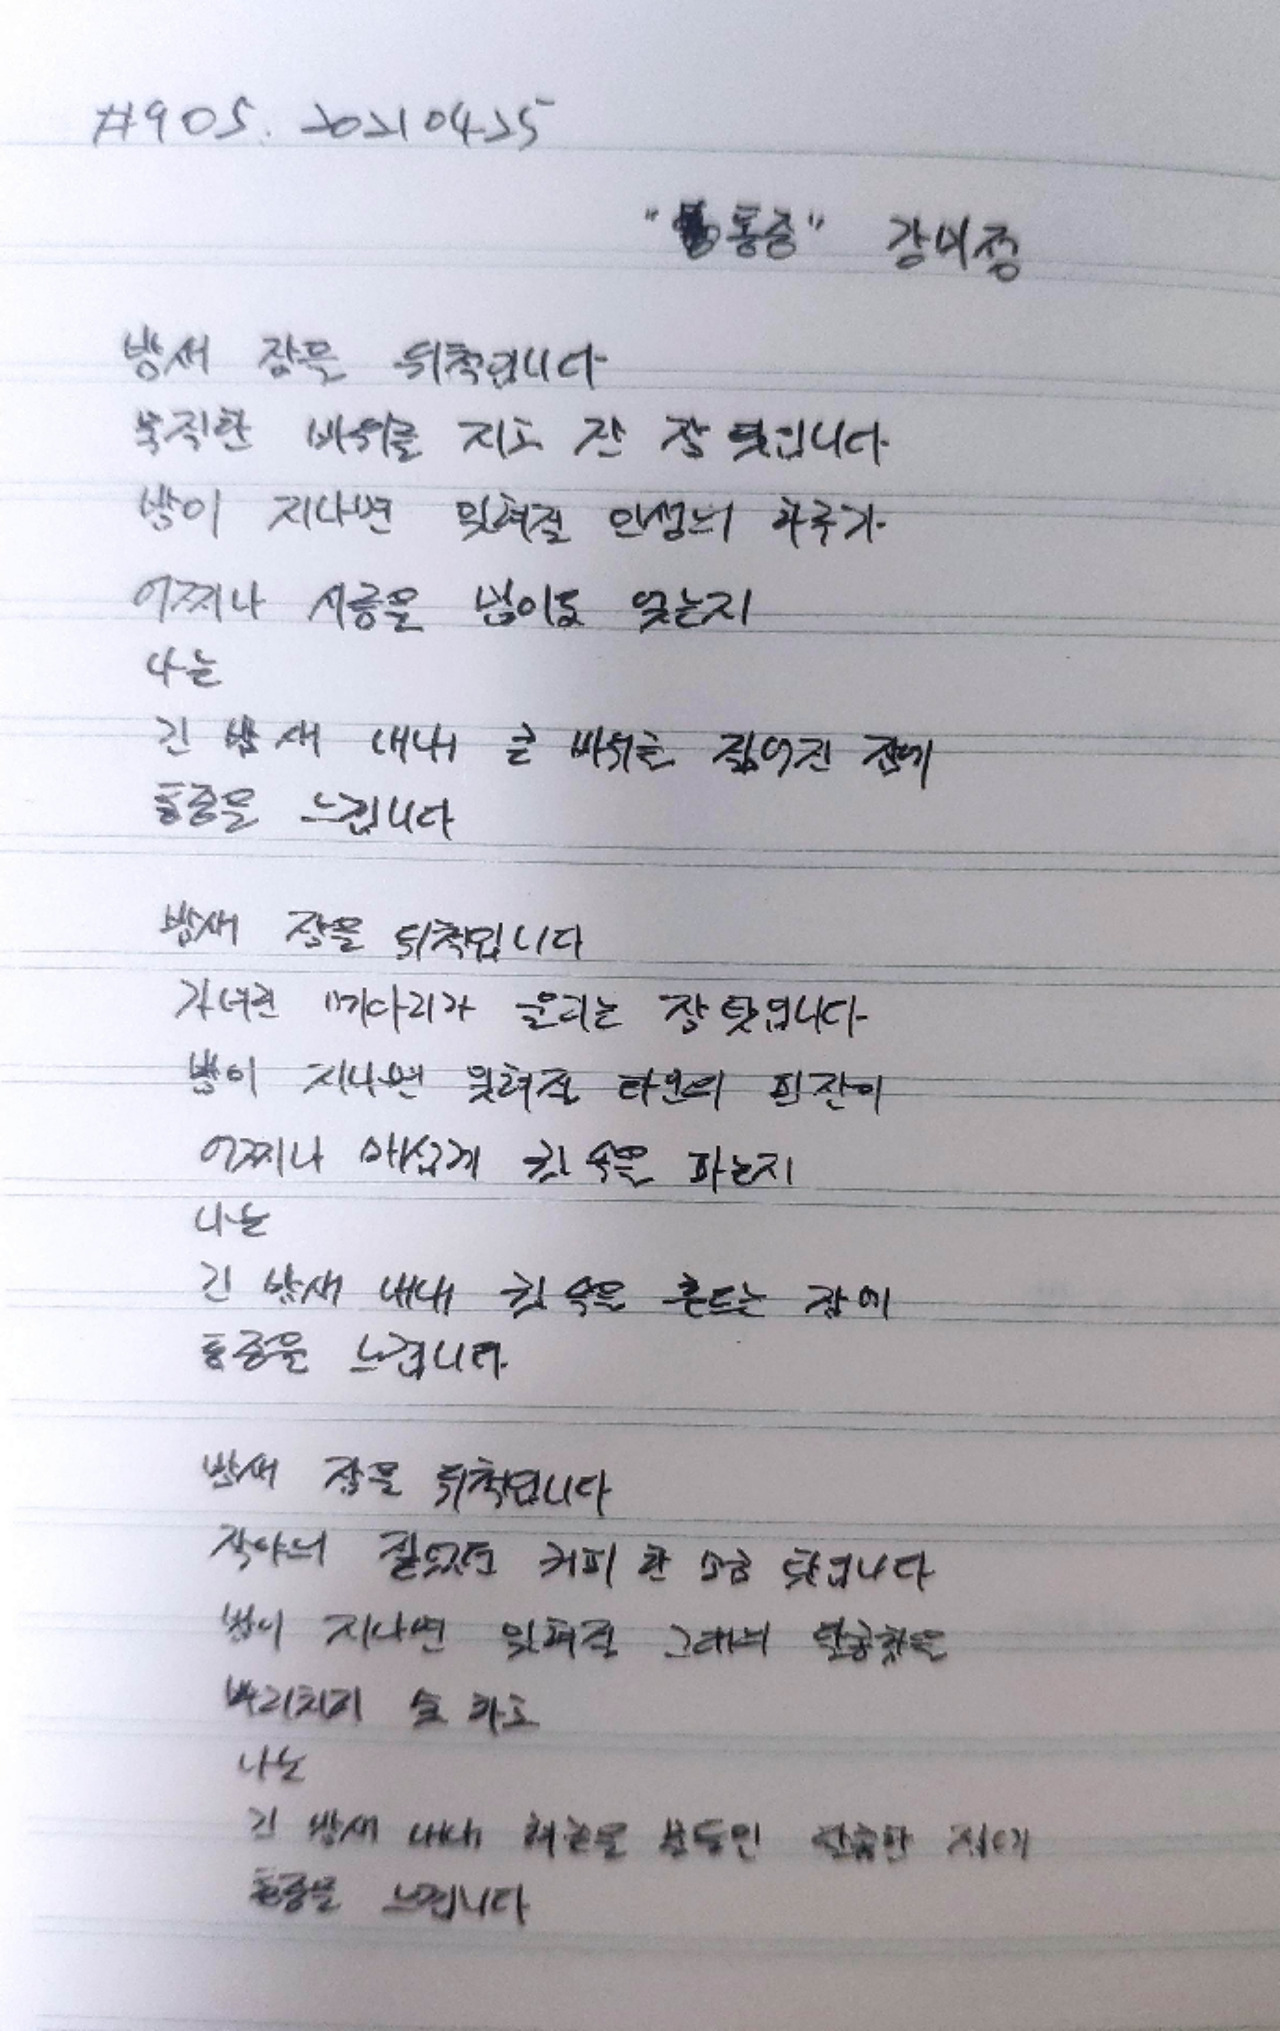 #905. 20210425
"통증" 강미정
밤새 잠을 뒤척입니다
묵직한 바위를 지고 잔 잠 탓입니다
밤이 지나면 잊혀질 인생의 하루가
어찌나 시름을 넘이도 엮는지
나는
긴 밤새 내내 큰 바위를 짊어진 잠에
통증을 느낍니다
밤새 잠을 뒤척입니다
가녀린 빗다리가 울리는 잠 탓입니다
밤이 지나면 잊혀질 타인의 핀잔이
어찌나 매섭게 귓 속을 파는지
나는
긴 밤새 내내 귓 속을 흔드는 잠에
통증을 느낍니다
밤새 잠을 뒤척입니다
작야의 짙었던 커피 한 모금 탓입니다
밤이 지나면 잊혀질 그대의 달콤함을
뿌리치지 못 하고
나는
긴 밤새 내내 혀끝을 붙들인 달콤한 잠에
통증을 느낍니다